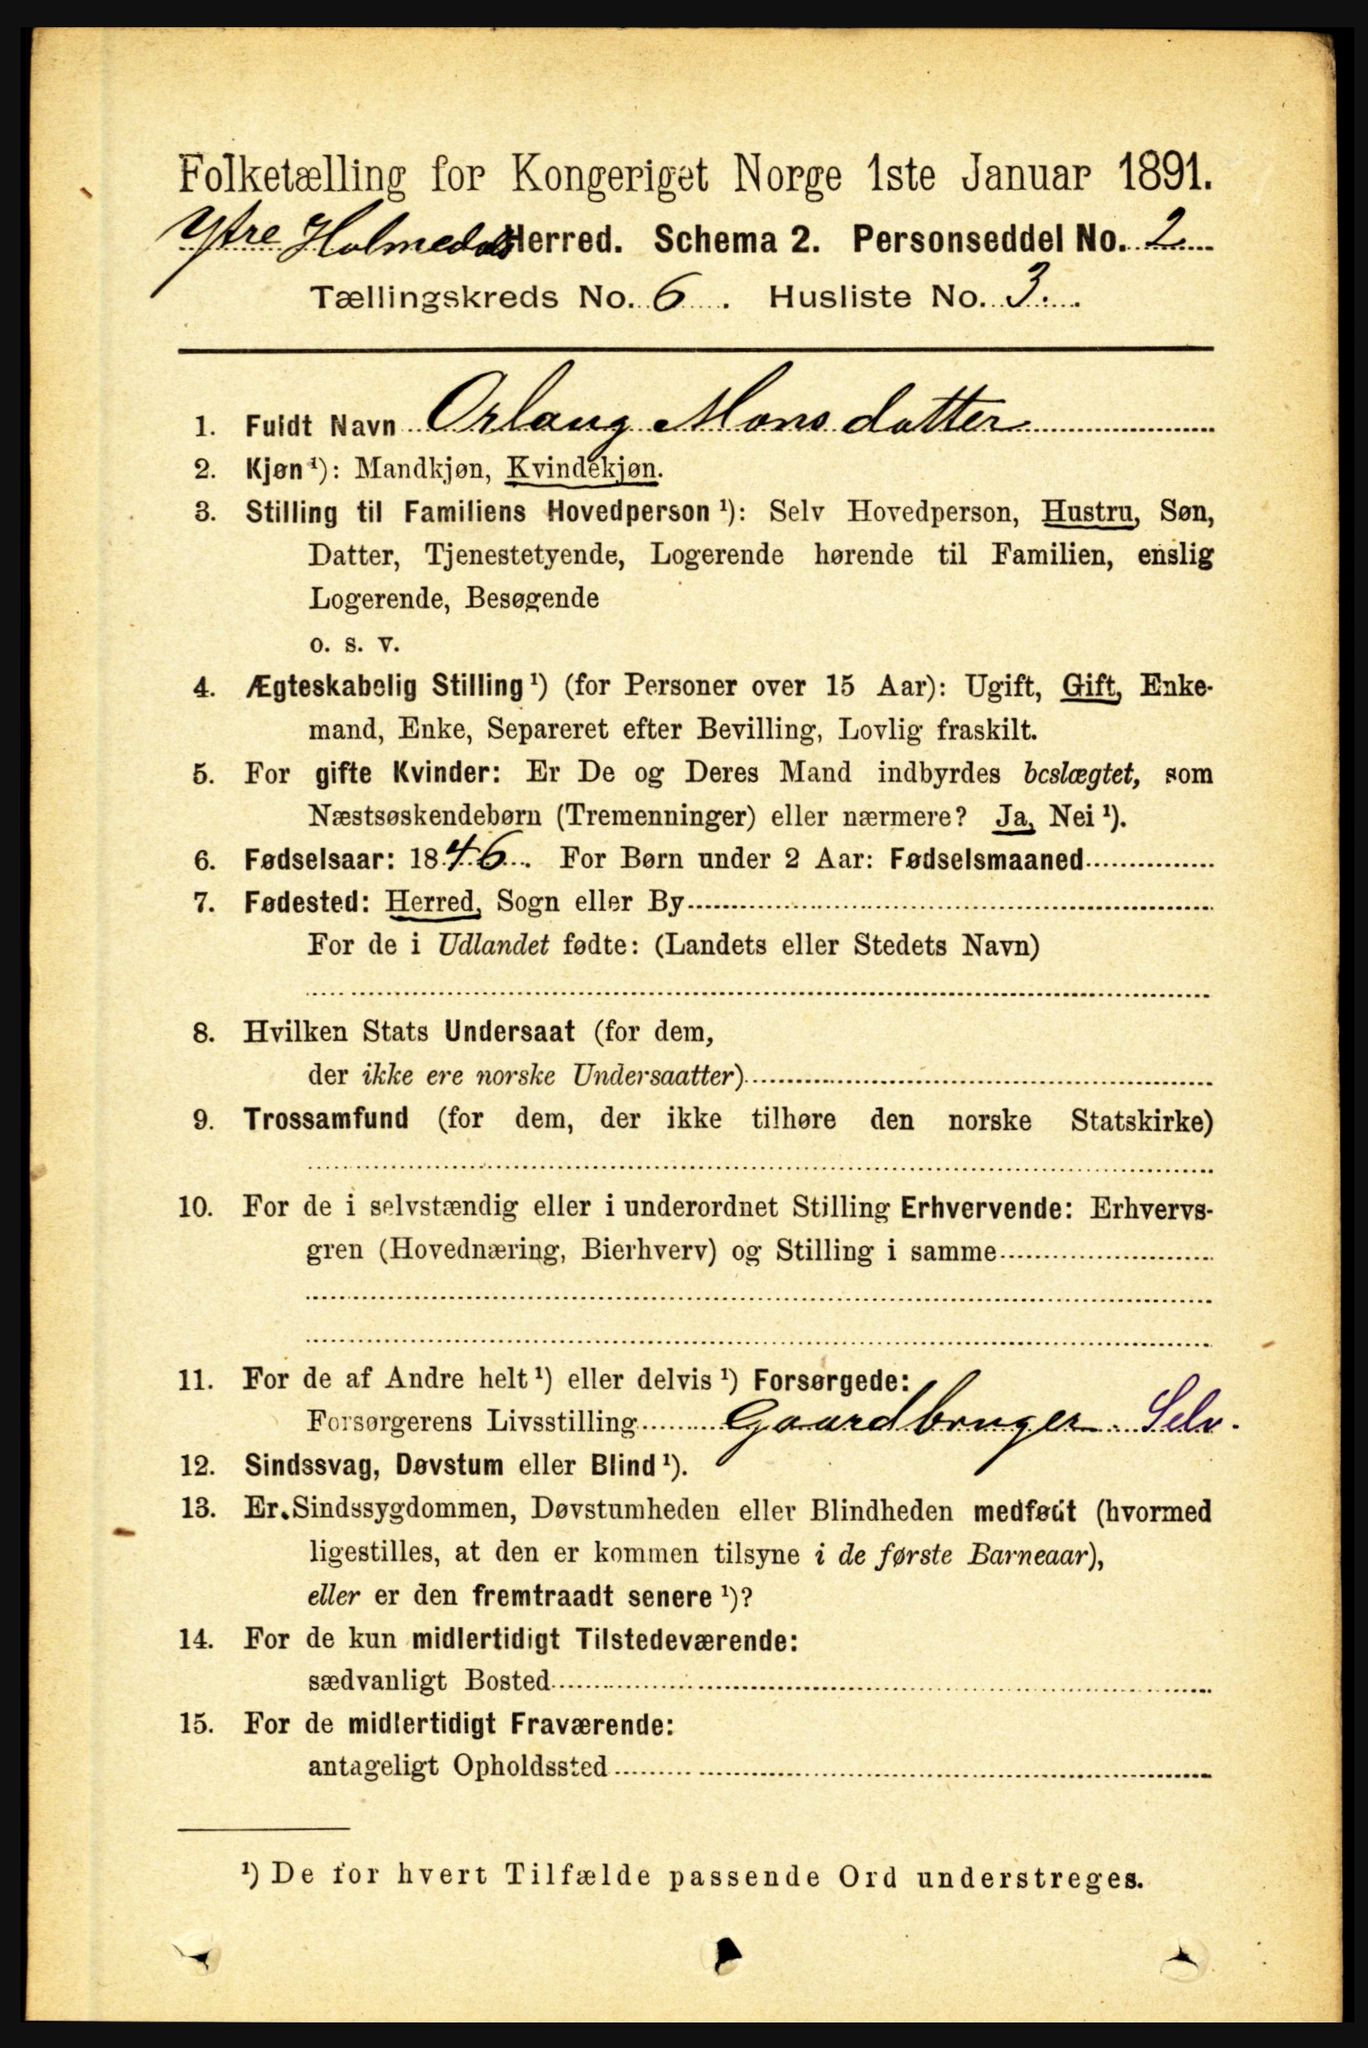 Folketælling for Kongeriget Norge 1ste Januar 1891.
Ytre Holmedals Herred. Schema 2. Personseddel No. 2
Tællingskreds No. 6. Husliste No. 3.
1. Fuldt Navn Orlaug Monsdatter
2. Kjøn ¹): Mandkjøn, Kvindekjøn.
3. Stilling til Familiens Hovedperson ¹): Selv Hovedperson, Hustru, Søn,
Datter, Tjenestetyende, Logerende hørende til Familien, enslig
Logerende, Besøgende
o. s. v.
4. Ægteskabelig Stilling ¹) (for Personer over 15 Aar): Ugift, Gift, Enke-
mand, Enke, Separeret efter Bevilling, Lovlig fraskilt.
5. For gifte Kvinder: Er De og Deres Mand indbyrdes beslægtet, som
Næstsøskendebørn (Tremenninger) eller nærmere? Ja, Nei ¹).
6. Fødselsaar: 1846. For Børn under 2 Aar: Fødselsmaaned
7. Fødested: Herred, Sogn eller By
For de i Udlandet fødte: (Landets eller Stedets Navn)
8. Hvilken Stats Undersaat (for dem,
der ikke ere norske Undersaatter)
9. Trossamfund (for dem, der ikke tilhøre den norske Statskirke)
10. For de i selvstændig eller i underordnet Stilling Erhvervende: Erhvervs-
gren (Hovednæring, Bierhverv) og Stilling i samme
11. For de af Andre helt ¹) eller delvis ¹) Forsørgede:
Forsørgerens Livsstilling Gaardbruger. Selv.
12. Sindssvag, Døvstum eller Blind ¹).
13. Er Sindssygdommen, Døvstumheden eller Blindheden medfødt (hvormed
ligestilles, at den er kommen tilsyne i de første Barneaar),
eller er den fremtraadt senere ¹)?
14. For de kun midlertidigt Tilstedeværende:
sædvanligt Bosted
15. For de midlertidigt Fraværende:
antageligt Opholdssted
¹) De for hvert Tilfælde passende Ord understreges.